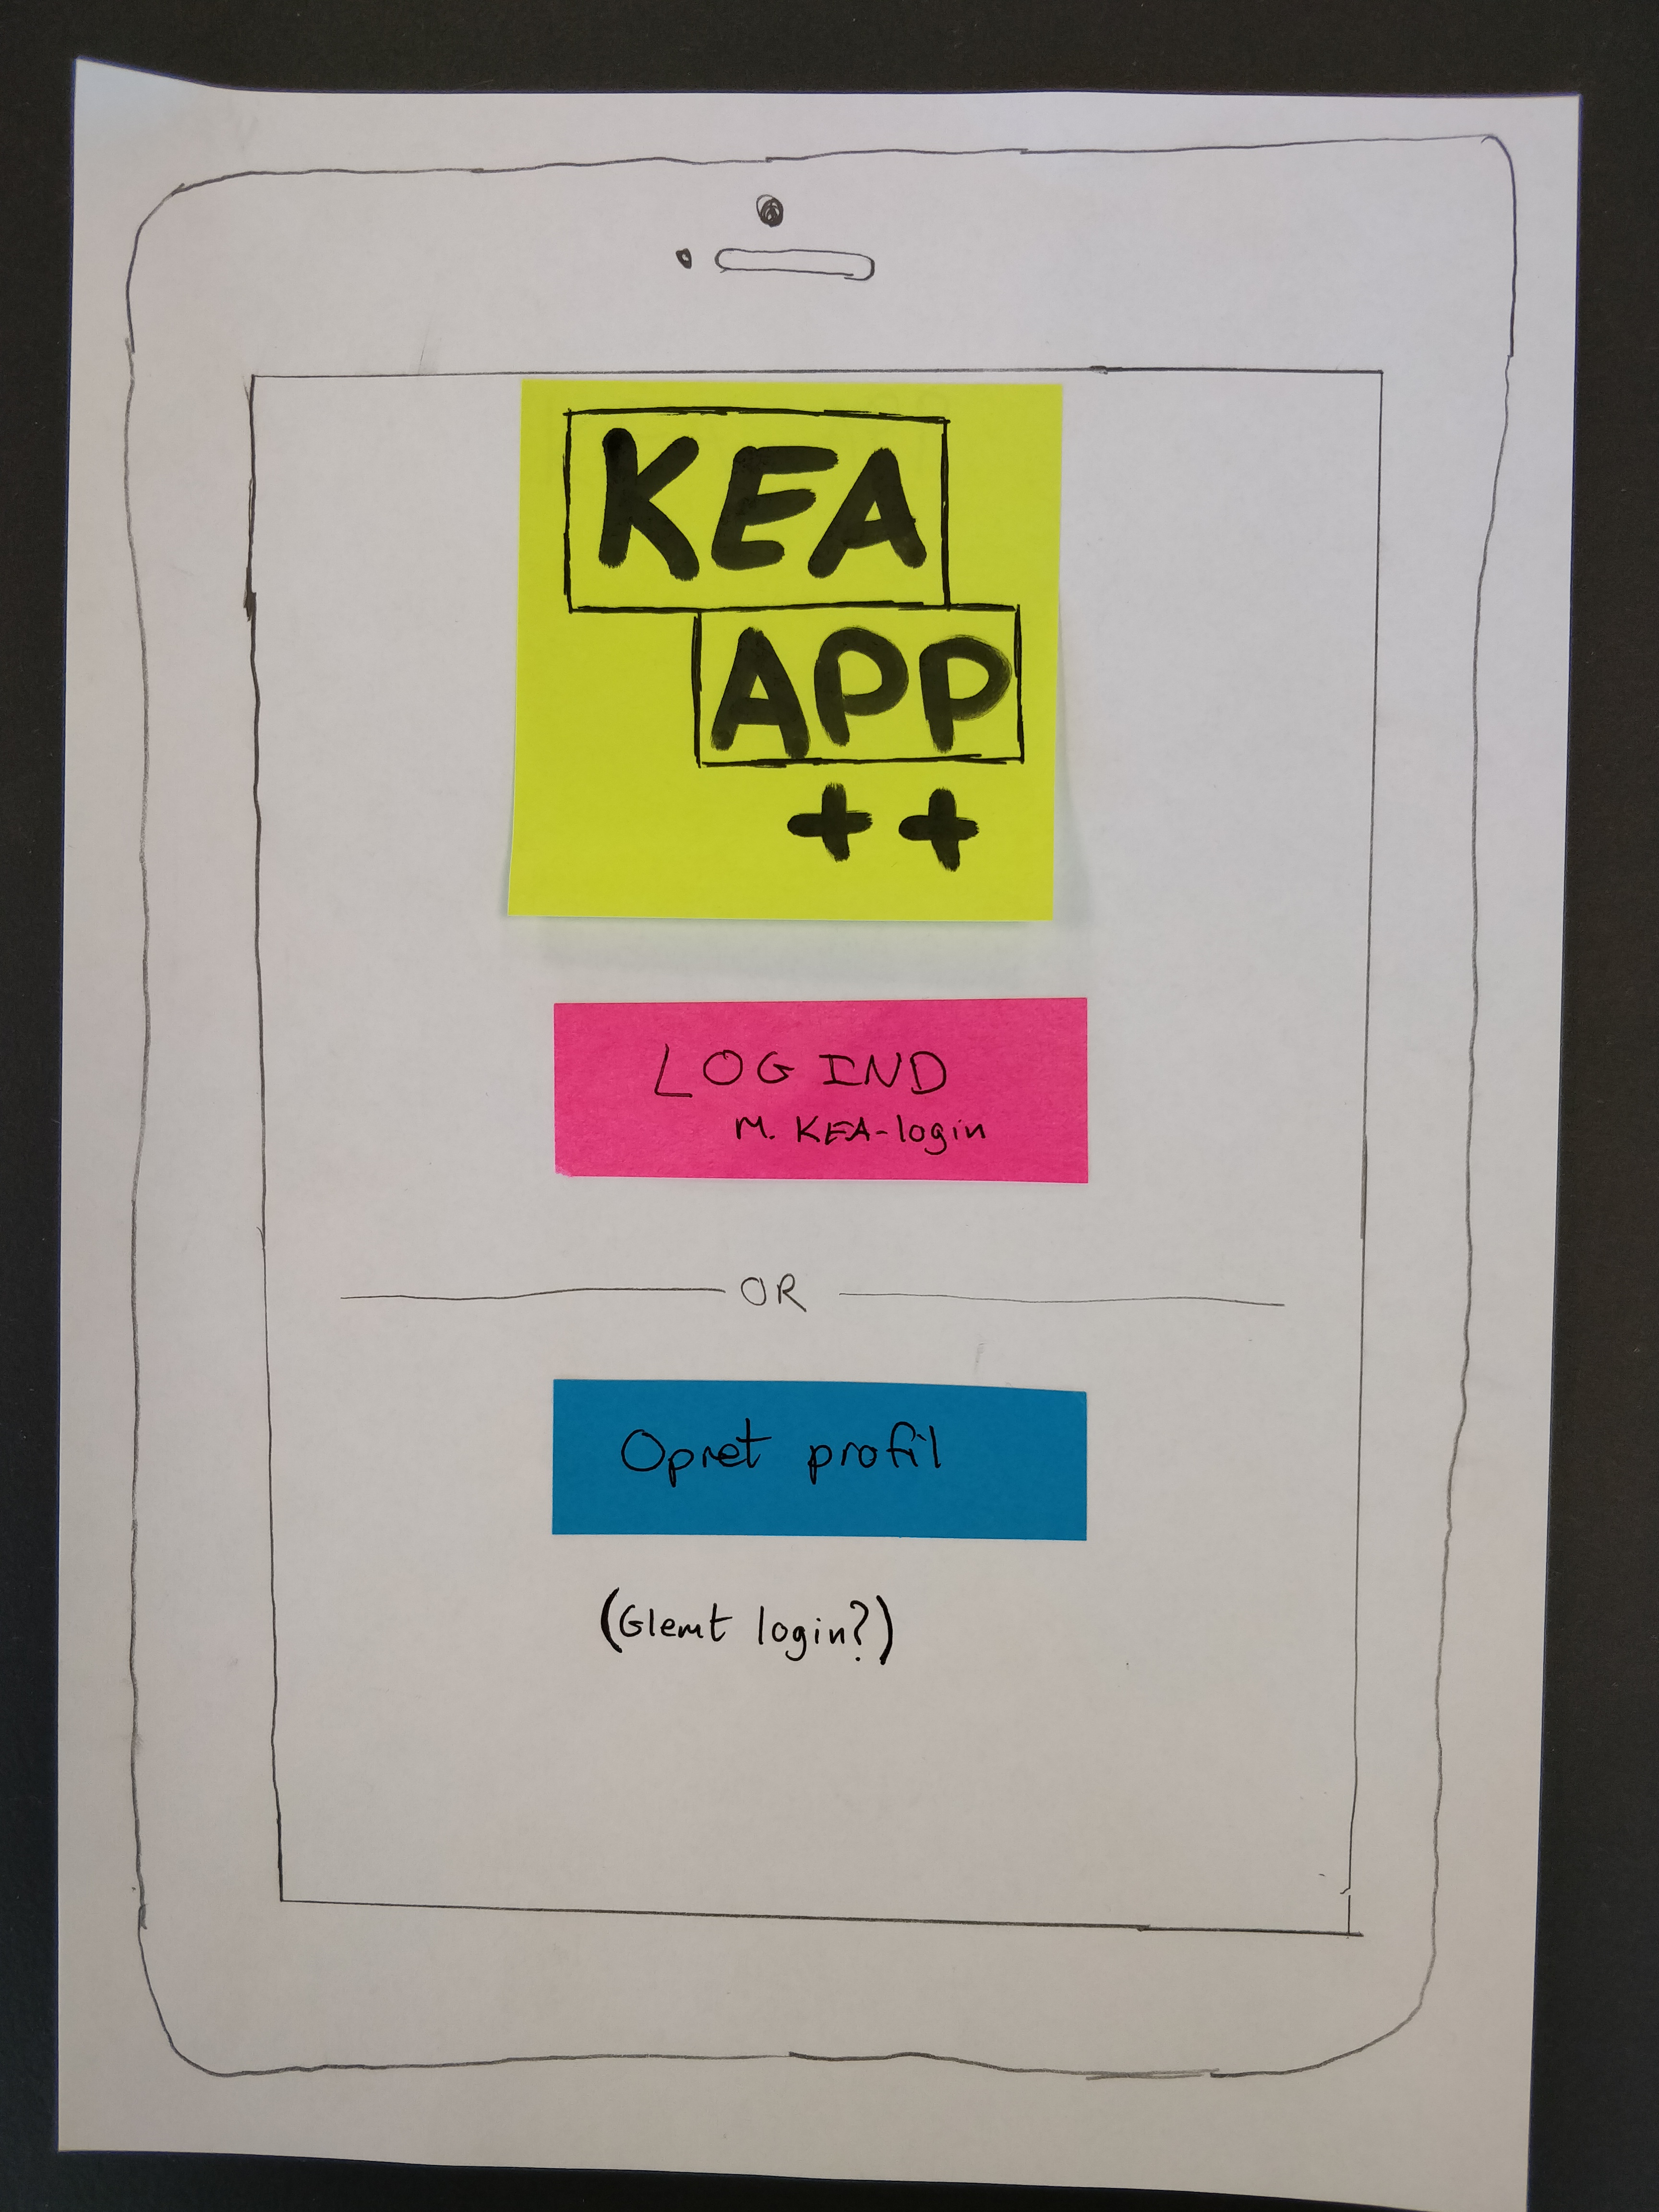 KEA
APP
++
LOG IND
M. KEA-login
OR
Opret profil
(Glemt login?)